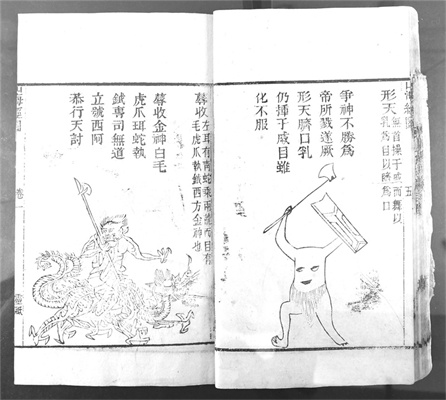 山海經圖 五
形天 無首操干戚而舞以
乳爲目以臍爲口
爭神不勝爲
帝所戮遂厥
形天臍口乳
仍揮干戚目雖
化不服
蓐收 左耳有青蛇乘兩龍面目有
毛虎爪執鉞西方金神也
蓐收金神白毛
虎爪珥蛇執
鉞專司無道
立號西阿
恭行天討
山海經圖 卷一